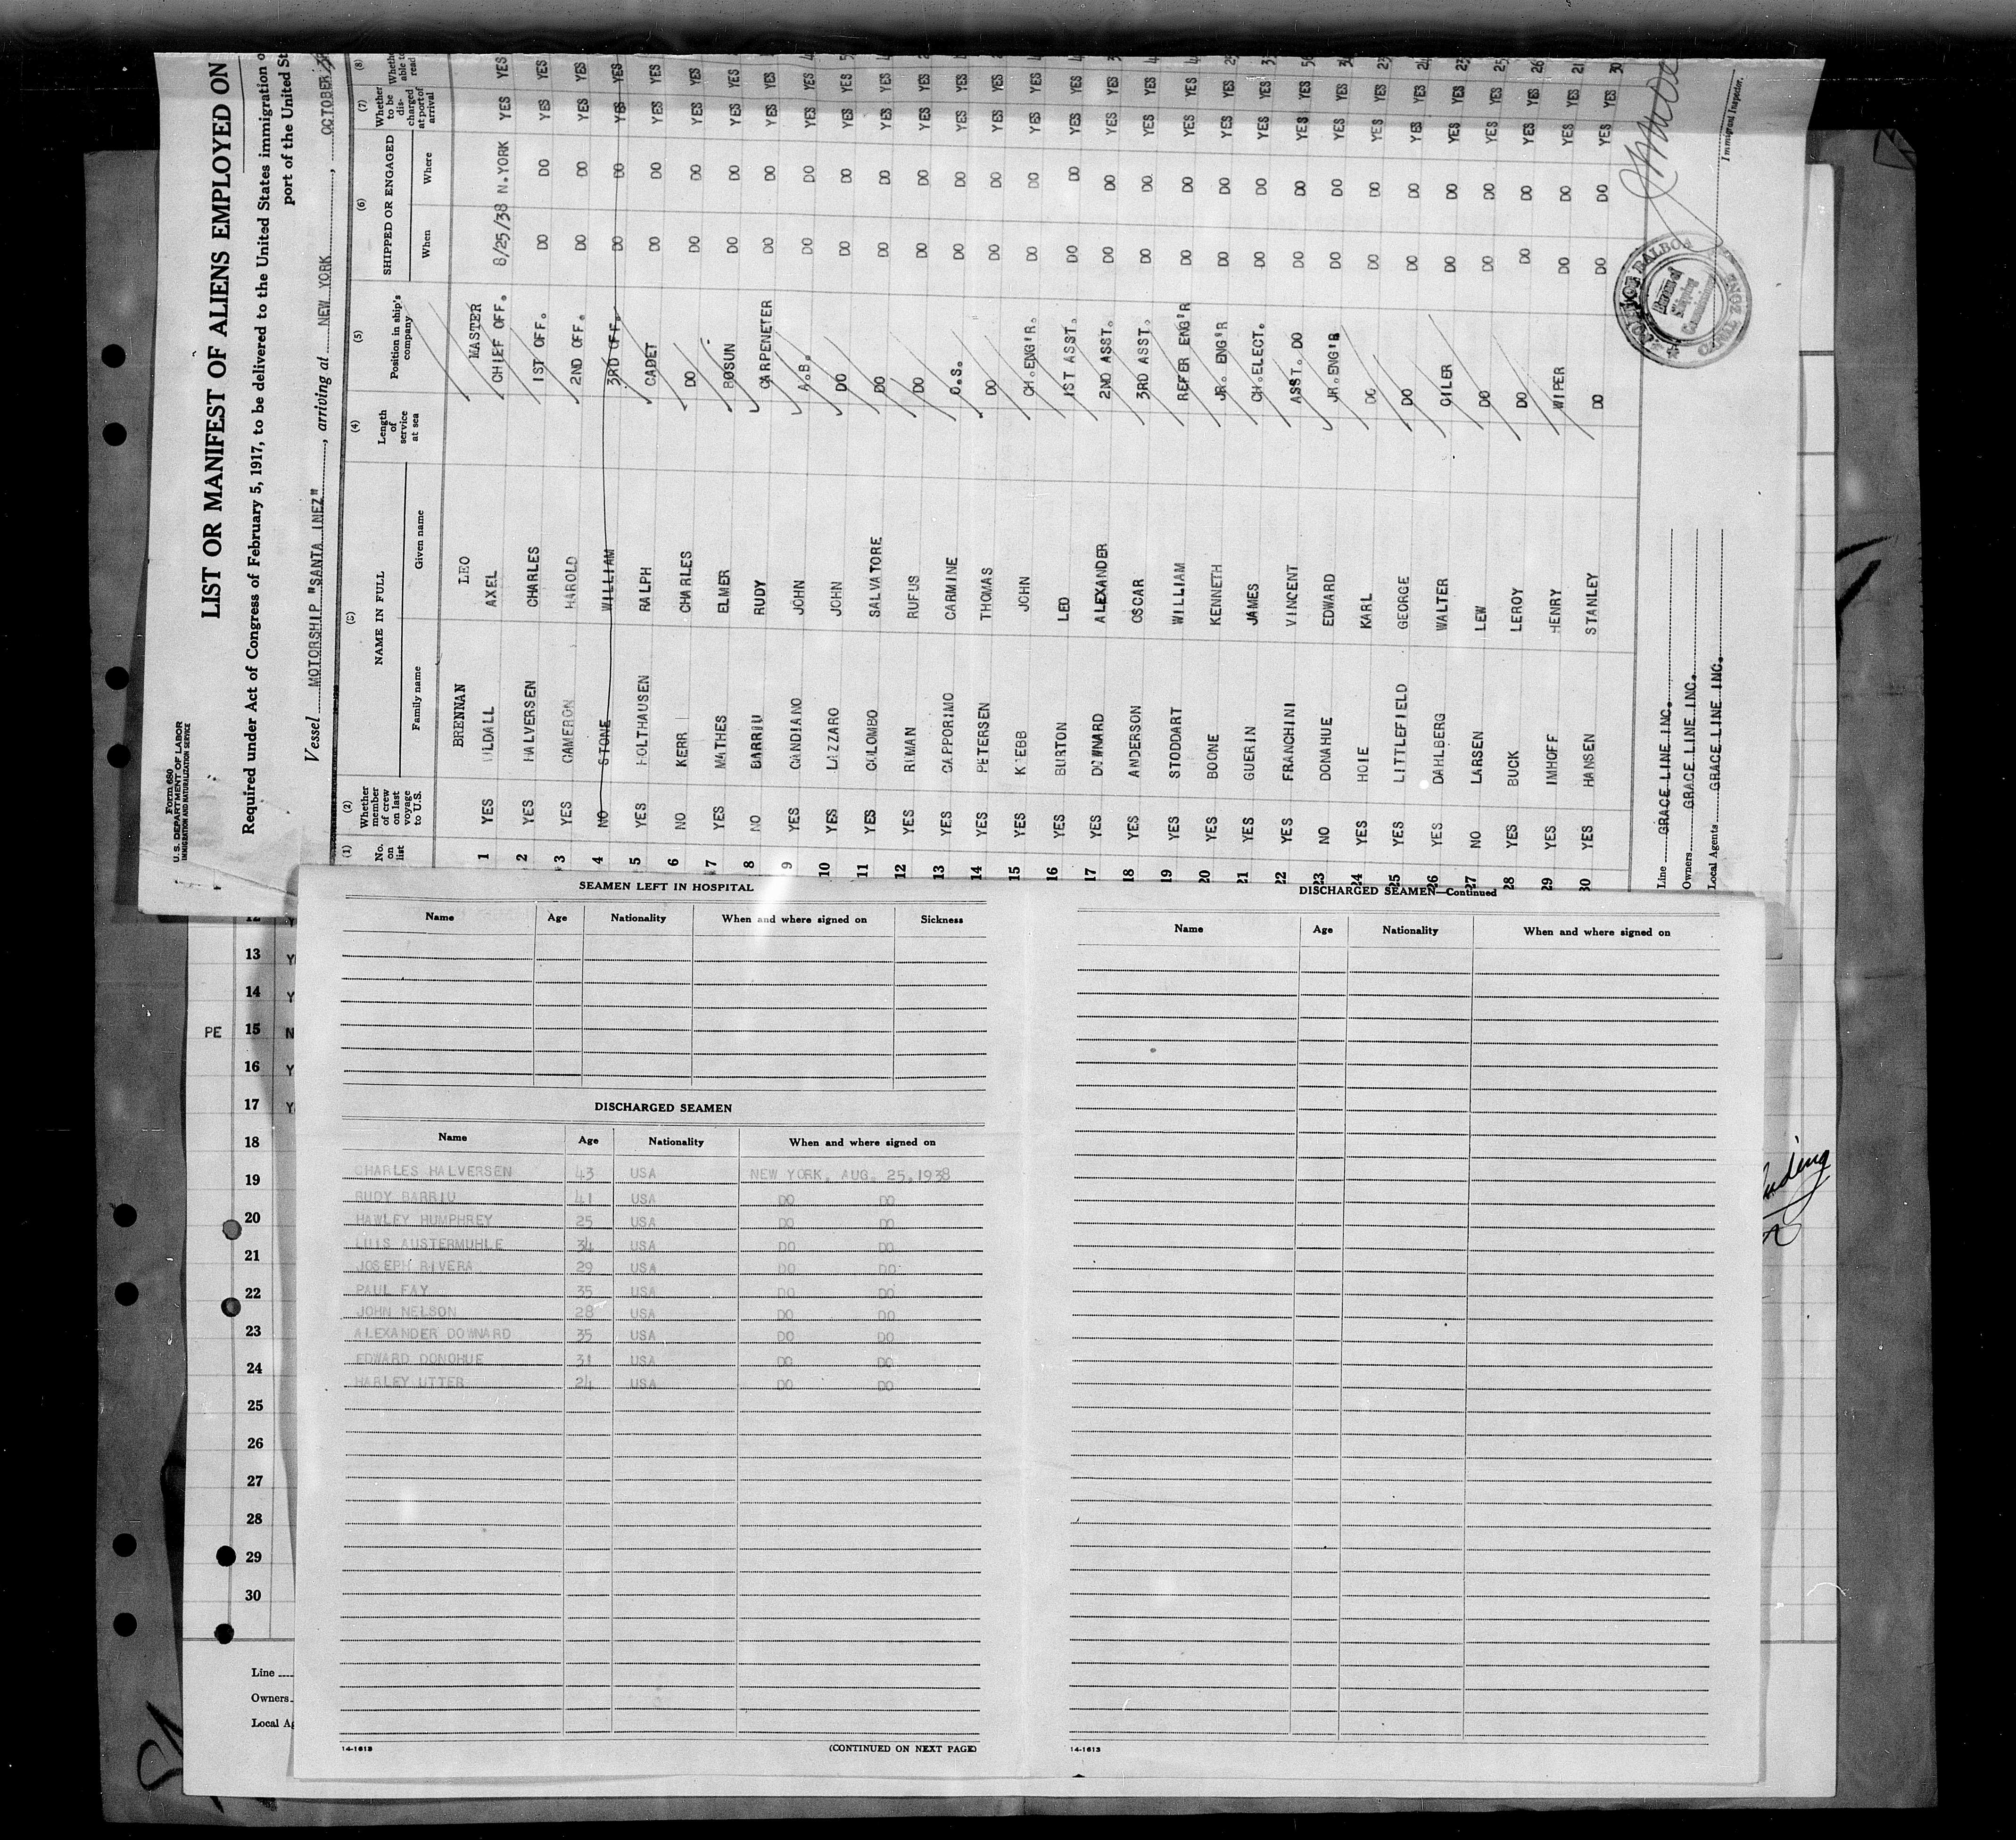 Form 680
U.S. DEPARTMENT OF LABOR
IMMIGRATION AND NATURALIZATION SERVICE
LIST OR MANIFEST OF ALIENS EMPLOYED ON
Required under Act of Congress of February 5, 1917, to be delivered to the United States immigration o
port of the United St
Vessel MOTORSHIP "SANTA INEZ", arriving at NEW YORK, OCTOBER
(1) (2) (3) (4) (5) (6) (7) (8)
No. on list Whether member of crew on last voyage to U.S. NAME IN FULL Family name Given name Length of service at sea Position in ship's company SHIPPED OR ENGAGED When Where Whether to be discharged at port of arrival Wheth able to read
BRENNAN LEO MASTER
1 YES AXEL CHIEF OFF. 8/25/38 N.YORK YES YES
2 YES HALVERSEN CHARLES 1ST OFF. DO DO YES YES
3 YES CAMERON HAROLD 2ND OFF. DO DO YES YES
4 NO STONE WILLIAM 3RD OFF. DO DO YES YES
5 YES HOLTHAUSEN RALPH CADET DO DO YES YES
6 NO KERR CHARLES DO DO DO YES YES
7 YES MATHES ELMER BOSUN DO DO YES YES
8 NO BARRIU RUDY CARPENETER DO DO YES YES
9 YES CANDIANO JOHN A.B. DO DO YES YES 4
10 YES LAZZARO JOHN DO DO DO YES YES 5
11 YES COLOMBO SALVATORE DO DO DO YES YES 4
12 YES RUFUS DO DO DO YES YES 2
13 YES CAPPORIMO CARMINE O.S. DO DO YES YES
14 YES PETERSEN THOMAS DO DO DO YES YES
15 YES JOHN CH.ENG'R. DO DO YES YES 4
16 YES BURTON LEO 1ST ASST. DO DO YES YES 4
17 YES DOWNARD ALEXANDER 2ND ASST. DO DO YES YES 3
18 YES ANDERSON OSCAR 3RD ASST. DO DO YES YES 4
19 YES STODDART WILLIAM REFER ENG'R DO DO YES YES 4
20 YES BOONE KENNETH JR. ENG'R DO DO YES YES 29
21 YES GUERIN JAMES CH.ELECT. DO DO YES YES 3
22 YES FRANCHINI VINCENT ASST. DO DO DO YES YES 50
23 NO DONAHUE EDWARD JR.ENG'R DO DO YES YES
24 YES HOIE KARL DO DO DO YES YES 23
25 YES LITTLEFIELD GEORGE DO DO DO YES YES 24
26 YES DAHLBERG WALTER OILER DO DO YES YES 23
27 NO LARSEN LEW DO DO DO YES YES 25
28 YES BUCK LEROY DO DO DO YES YES 26
29 YES IMHOFF HENRY WIPER DO DO YES YES 21
30 YES HANSEN STANLEY DO DO DO YES YES 30
Line GRACE LINE INC.
Owners GRACE LINE INC.
Local Agents GRACE LINE INC.
Immigrant Inspector.
BALBOA
Shipping
Commissioner
SEAMEN LEFT IN HOSPITAL
Name Age Nationality When and where signed on Sickness
DISCHARGED SEAMEN
Name Age Nationality When and where signed on
CHARLES HALVERSEN 43 USA NEW YORK, AUG. 25,1938
RUDY BARRIU 41 USA DO DO
HAWLEY HUMPHREY 25 USA DO DO
LUIS AUSTERMUHLE 34 USA DO DO
JOSEPH RIVERA 29 USA DO DO
PAUL FAY 35 USA DO DO
JOHN NELSON 28 USA DO DO
ALEXANDER DOWNARD 35 USA DO DO
EDWARD DONOHUE 31 USA DO DO
HARLEY UTTER 24 USA DO DO
14-1613
(CONTINUED ON NEXT PAGE)
DISCHARGED SEAMEN—Continued
Name Age Nationality When and where signed on
14-1613
12 Y
13 Y
14 Y
PE 15 N
16 Y
17 Y
18
19
20
21
22
23
24
25
26
27
28
29
30
Line
Owners
Local Ag